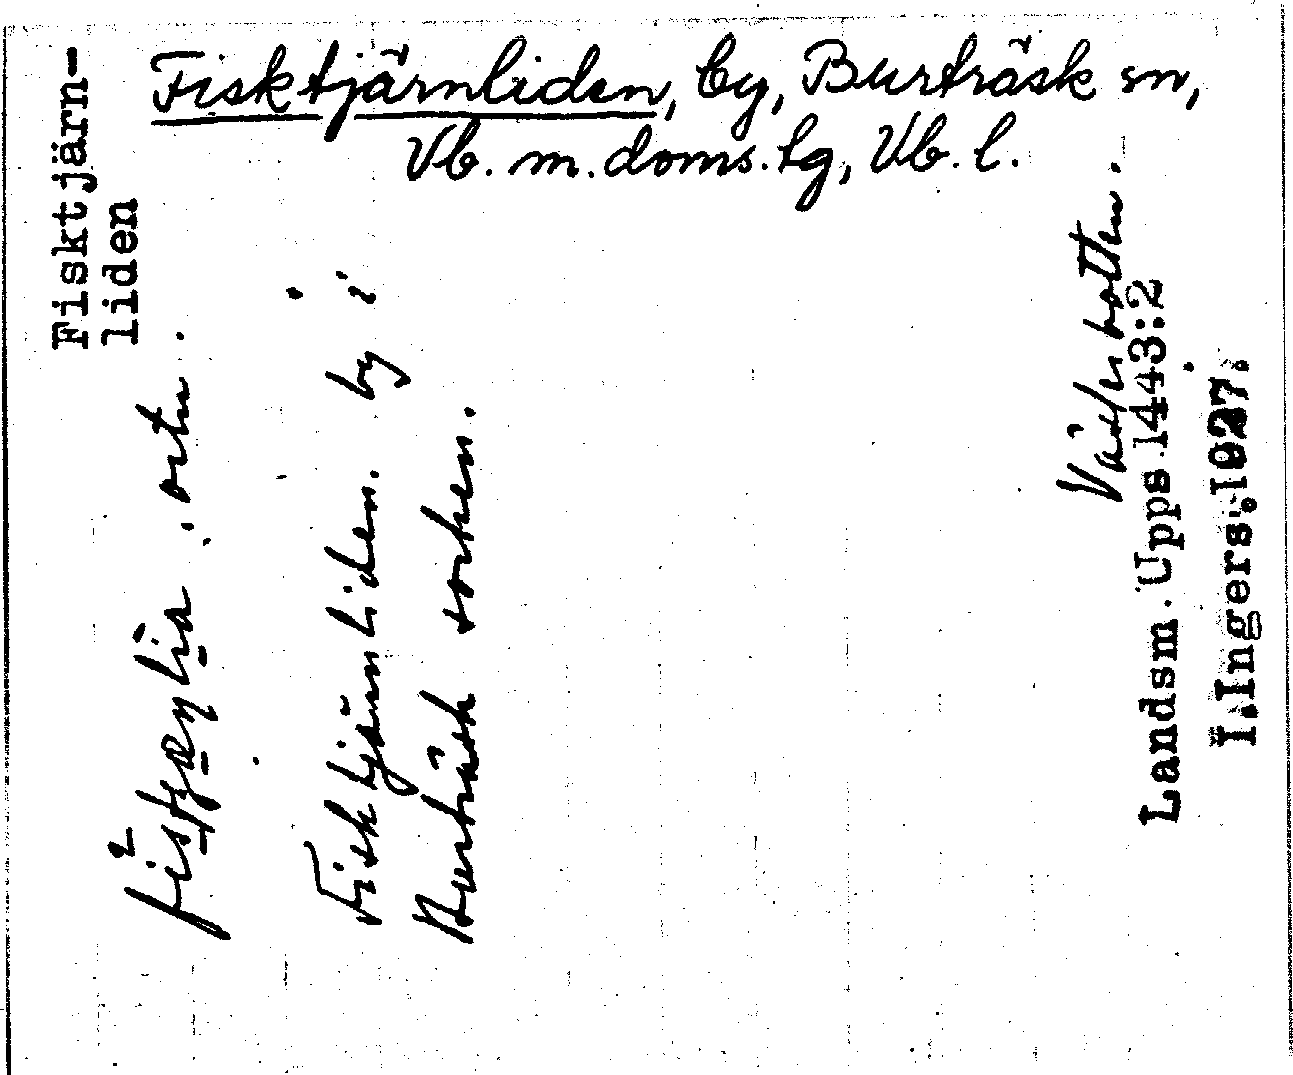 Fisktjärnliden, by, Burträsk sn,
Vb. m. doms. tg, Vb. l.
Fisktjärn-
liden
ortn.
Fisktjärnliden. by i
Burträsk socken.
Västerbotten.
Landsm. Upps. 1443:2
Ingers. 1927.